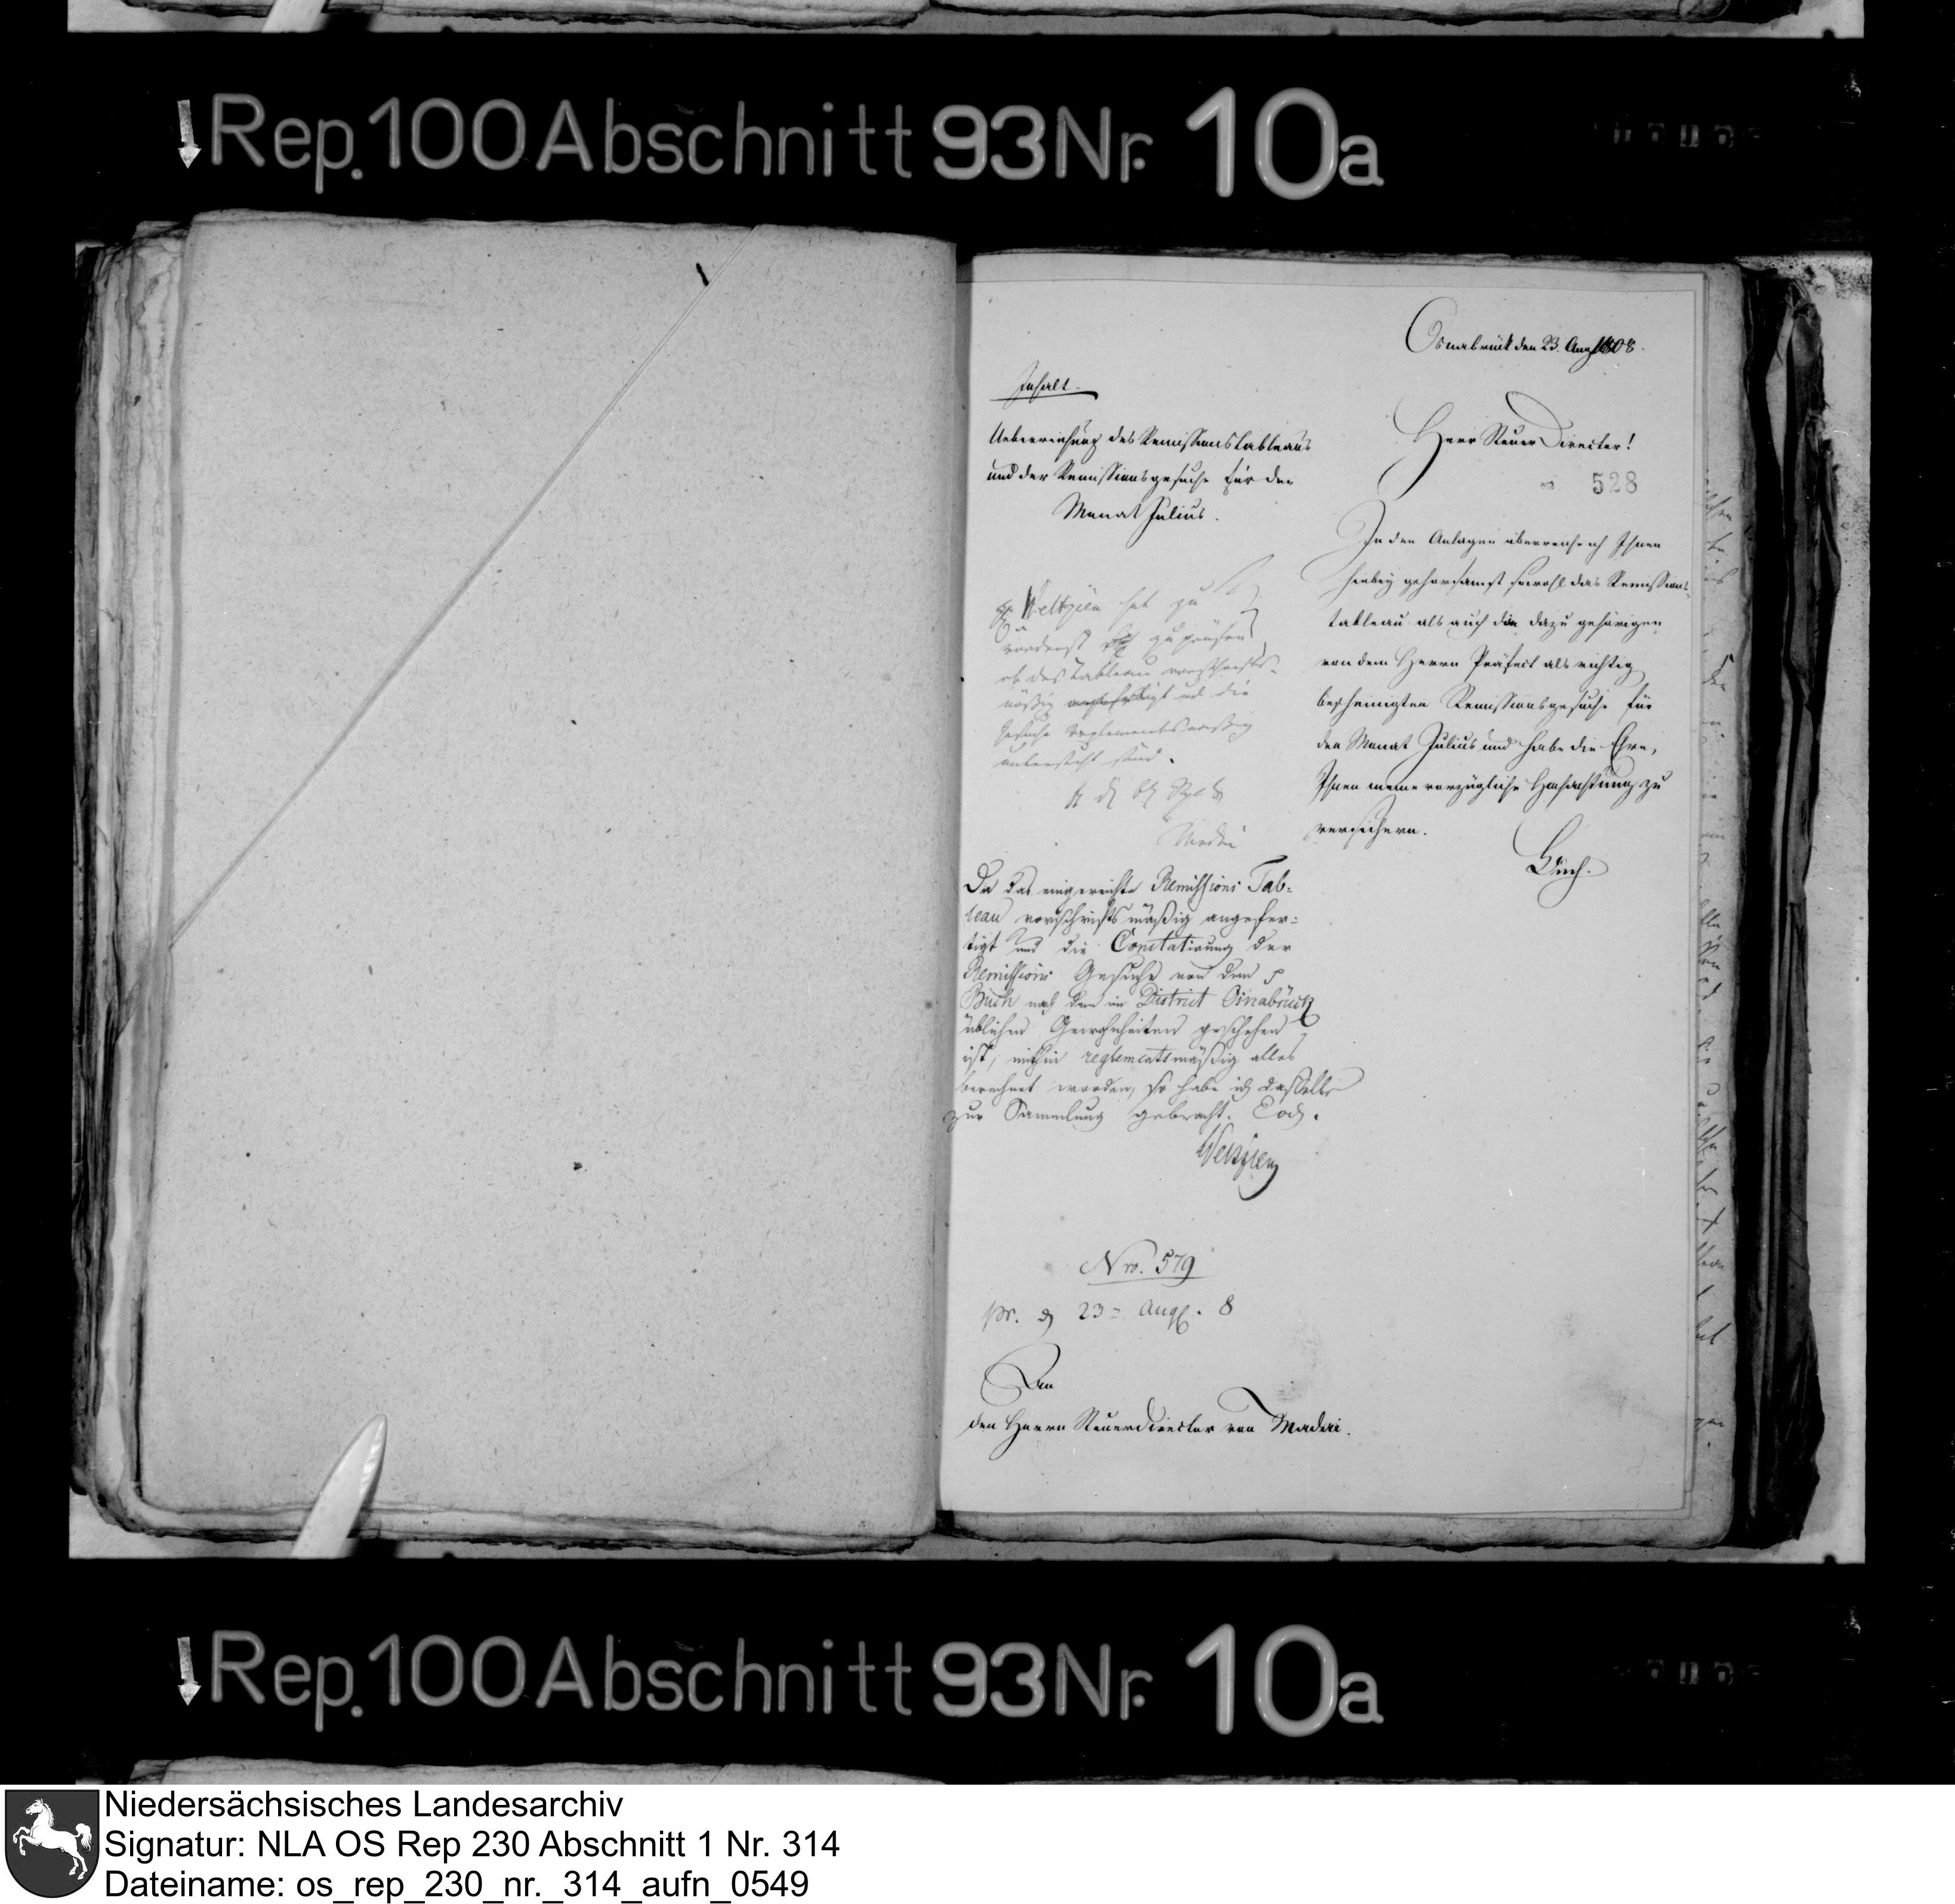 Rep. 100 Abschnitt 93 Nr. 10a
Osnabrück den 23. Aug 1808.
Inhalt.
Ueberreichung des Remissionstableaus
und der Remissionsgesuche für den
Monat Julius.
Herr Steuer Director!
528
In den Anlagen überreiche ich Ihnen
hiebey gehorsamst sowohl das Remissions-
tableau als auch die dazu gehörigen
von dem Herrn Präfect als richtig
bescheinigten Remissionsgesuche für
den Monat Julius und habe die Ehre,
Ihnen meine vorzügliche Hochachtung zu
versichern.
Buch.
Weltzien hat zu
vorderst zu prüfen,
ob das Tableau vorschrifts-
mäßig angefertigt und die
Gesuche reglementsmäßig
untersucht sind.
Da das eingereichte Remissions Tab-
leau vorschriftsmäßig angefer-
tigt und die Constatirung der
Remissions Gesuche von dem p
Buch nach den im District Osnabrück
üblichen Gewohnheiten geschehen
ist, mithin reglementsmäßig alles
berechnet worden, so habe ich dasselbe
zur Sammlung gebracht. Eod.
Weltzien
Nro. 579
pr. d 23 Aug. 8
An
den Herrn Steuerdirector von Madai.
Rep. 100 Abschnitt 93 Nr. 10a
Niedersächsisches Landesarchiv
Signatur: NLA OS Rep 230 Abschnitt 1 Nr. 314
Dateiname: os_rep_230_nr._314_aufn_0549